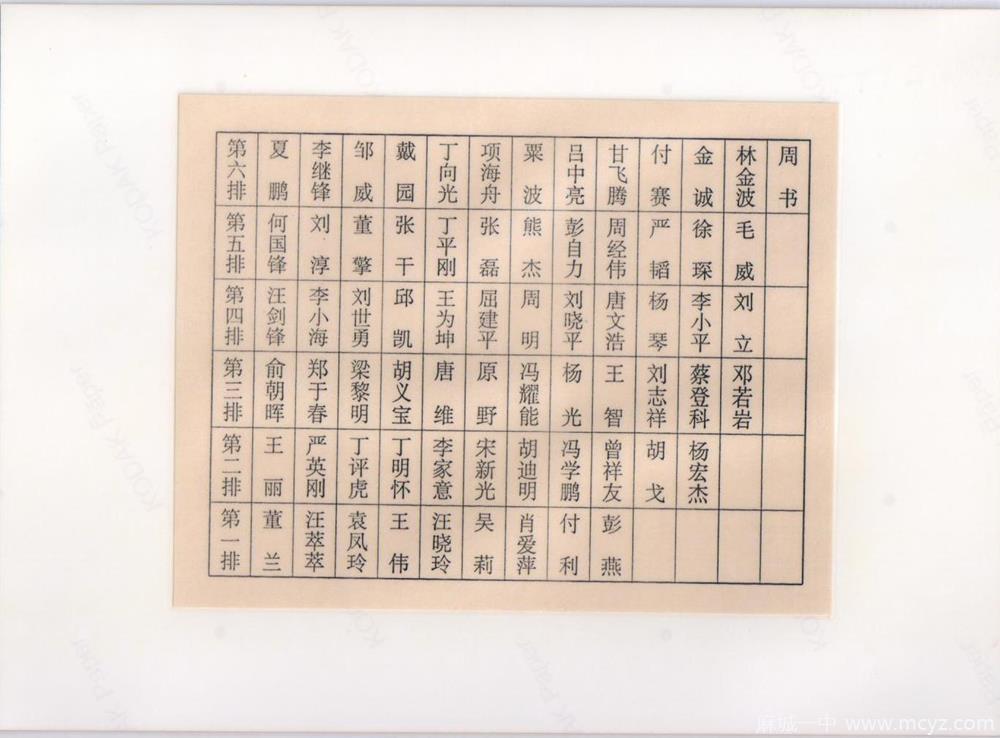 第六排 夏鹏 李继锋 邹威 戴园 丁向光 项海舟 粟波 吕中亮 甘飞腾 付赛 金诚 林金波 周书
第五排 何国锋 刘淳 董擎 张干 丁平刚 张磊 熊杰 彭自力 周经伟 严韬 徐琛 毛威
第四排 汪剑锋 李小海 刘世勇 邱凯 王为坤 屈建平 周明 刘晓平 唐文浩 杨琴 李小平 刘立
第三排 俞朝晖 郑于春 梁黎明 胡义宝 唐维 原野 冯耀能 杨光 王智 刘志祥 蔡登科 邓若岩
第二排 王丽 严英刚 丁评虎 丁明怀 李家意 宋新光 胡迪明 冯学鹏 曾祥友 胡戈 杨宏杰
第一排 董兰 汪萃萃 袁凤玲 王伟 汪晓玲 吴莉 肖爱萍 付利 彭燕
KODAK Paper
麻城一中 www.mcyz.com